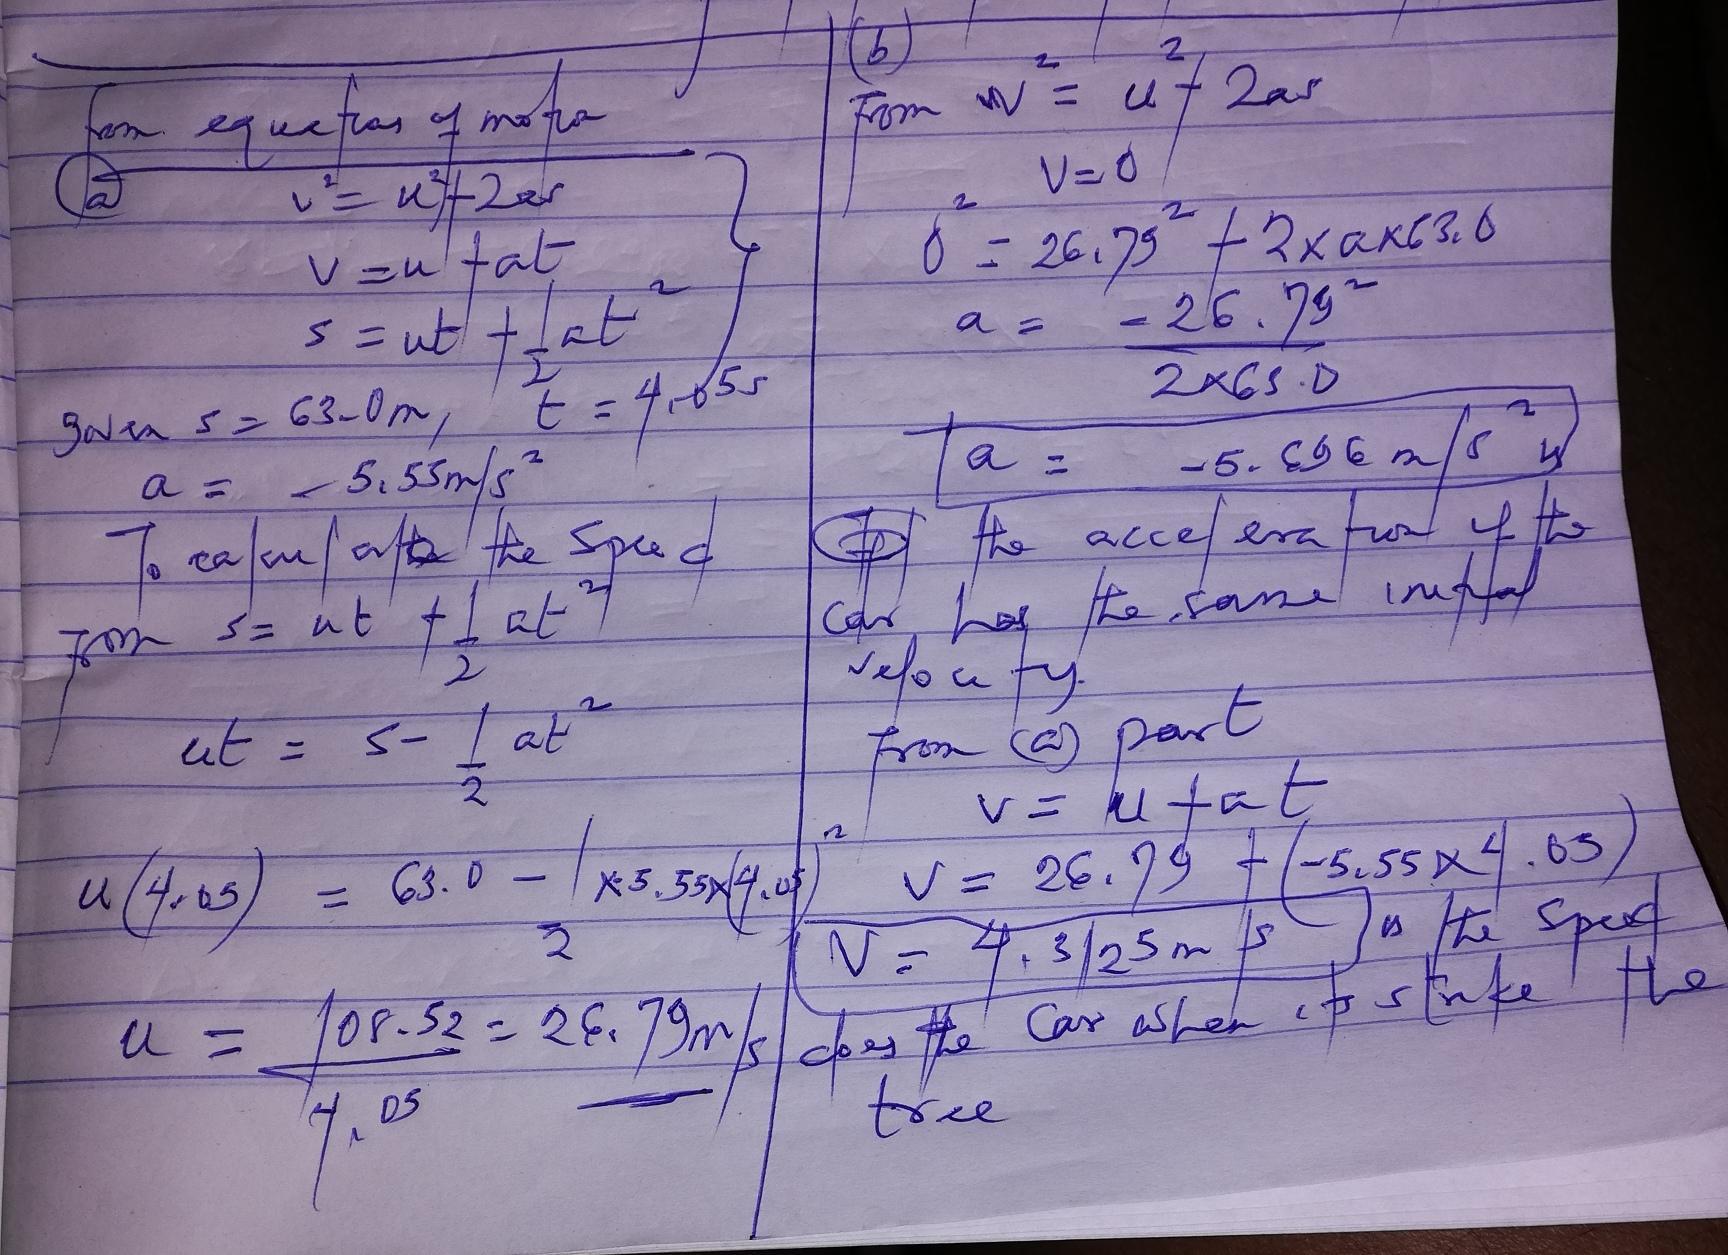 from equations of motion
(a) v² = u² + 2as
v = u + at
s = ut + 1/2 at²
given s = 63.0m, t = 4.05s
a = -5.55m/s²
To calculate the speed
From s = ut + 1/2 at²
ut = s - 1/2 at²
u(4.05) = 63.0 - 1/2 x-5.55x(4.05)²
u = 108.52/4.05 = 26.79m/s
(b)
From v² = u² + 2as
v = 0
0² = 26.79² + 2xax63.0
a = -26.79²/2x63.0
a = -5.696 m/s² is
the acceleration if the
car has the same initial
velocity.
From (a) part
v = u + at
v = 26.79 + (-5.55x4.05)
V = 4.3125m/s is the speed
does the car when its strike the
tree